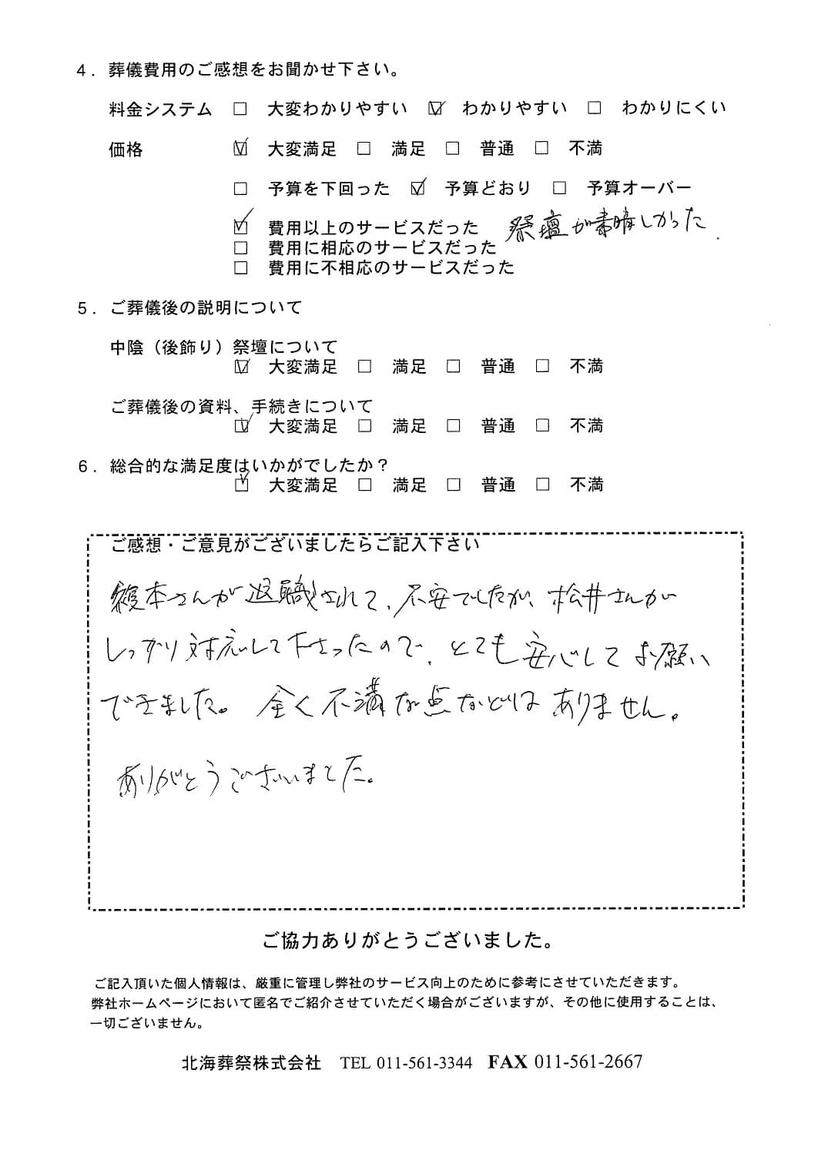 4．葬儀費用のご感想をお聞かせ下さい。
料金システム □ 大変わかりやすい ☑ わかりやすい □ わかりにくい
価格 ☑ 大変満足 □ 満足 □ 普通 □ 不満
□ 予算を下回った ☑ 予算どおり □ 予算オーバー
☑ 費用以上のサービスだった 祭壇が素晴しかった.
□ 費用に相応のサービスだった
□ 費用に不相応のサービスだった
5．ご葬儀後の説明について
中陰（後飾り）祭壇について
☑ 大変満足 □ 満足 □ 普通 □ 不満
ご葬儀後の資料、手続きについて
☑ 大変満足 □ 満足 □ 普通 □ 不満
6．総合的な満足度はいかがでしたか？
☑ 大変満足 □ 満足 □ 普通 □ 不満
ご感想・ご意見がございましたらご記入下さい
本さんが退職されて、不安でしたが、松井さんが
しっかり対応して下さったので、とても安心してお願い
できました。全く不満な点などはありません。
ありがとうございました。
ご協力ありがとうございました。
ご記入頂いた個人情報は、厳重に管理し弊社のサービス向上のために参考にさせていただきます。
弊社ホームページにおいて匿名でご紹介させていただく場合がございますが、その他に使用することは、
一切ございません。
北海葬祭株式会社 TEL 011-561-3344 FAX 011-561-2667